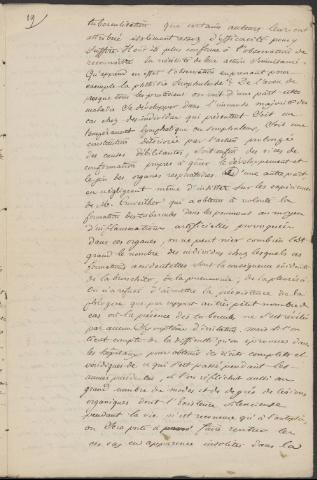 19
tuberculisation que certains auteurs leur ont
attribué isolément assez d'efficacité pour y
suffire. Il eut été plus conforme à l'observation de
reconnaître la nécessité de leur action simultanée.
Qu'apprend en effet l'observation en prenant pour
exemple la phthisie tuberculeuse? De l'aveu de
presque tous les praticiens on voit d'une part cette
maladie se développer dans l'immense majorité des
cas chez des individus qui présentent soit un
tempérament lymphatique ou scrophuleux, soit une
constitution détériorée par l'action prolongée
des causes débilitantes, soit enfin des vices de
conformation propres à gêner le développement et
le jeu des organes respiratoires. D'une autre part,
en négligeant même d'insister sur les expériences
de Mr. Cruveilher qui a obtenu à volonté la
formation des tubercules dans les poumons au moyen
d'inflammations artificielles provoquées
dans ces organes, on ne peut nier combien est
grand le nombre des individus chez lesquels ces
formations accidentelles sont la conséquence évidente
de la bronchite, de la pneumonie, de la pleurésie.
On n'a refusé d'admettre la préexistence de la
phlogose que par rapport au très petit nombre de
cas où la présence des tubercules ne s'est révélée
par aucun symptôme d'irritation, mais si l'on
tient compte de la difficulté qu'on éprouve dans
les hopitaux pour obtenir des récits complets et
véridiques de ce qui s'est passé pendant les
années précédentes, si l'on réfléchit aussi au
grand nombre de modes et de degrés de lésions
organiques dont l'existence silencieuse
pendant la vie n'est reconnue qu'à l'autopsie,
on sera porté à faire rentrer les
ces cas en apparence insolites dans la